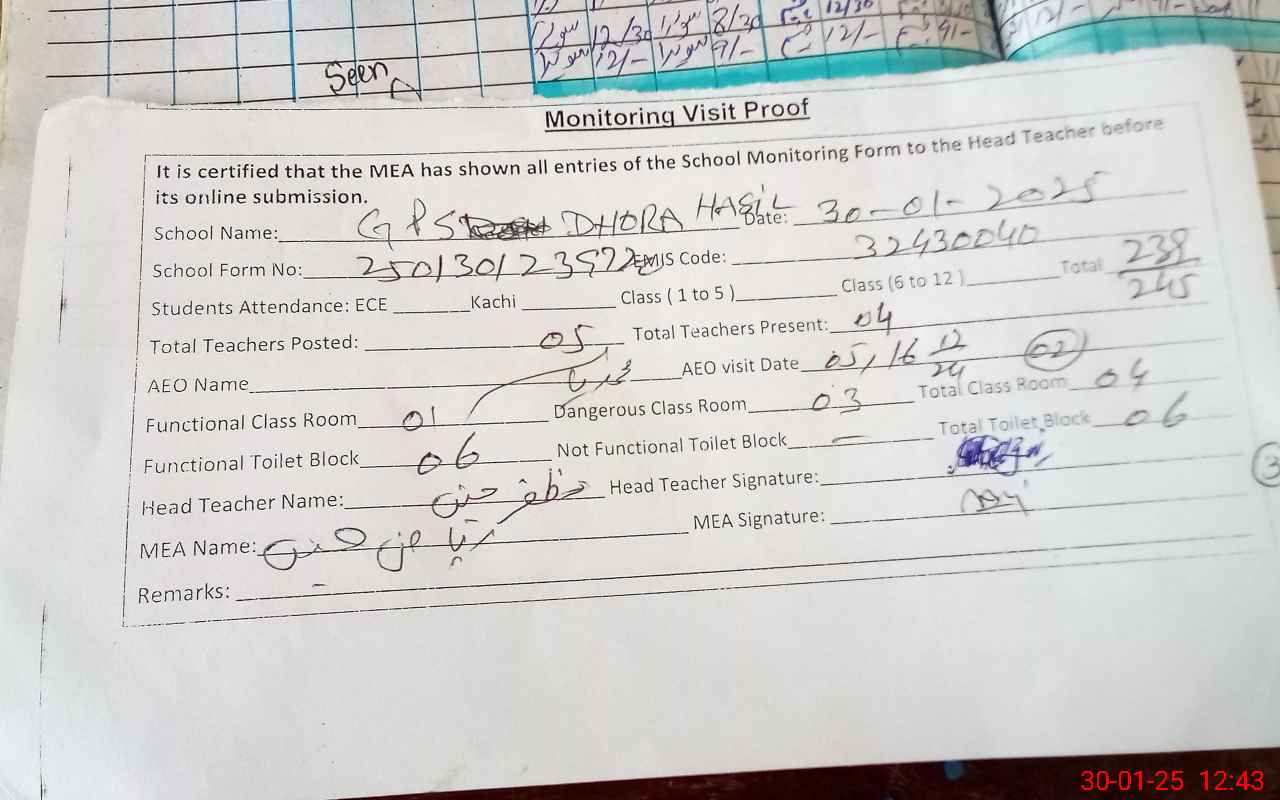 12/30 8/30 12/30
12/- 9/- 12/- 9/- 12/-
Seen
Monitoring Visit Proof
It is certified that the MEA has shown all entries of the School Monitoring Form to the Head Teacher before
its online submission.
School Name: GPS DHORA HASIL Date: 30-01-2025
School Form No: EMIS Code: 32430040
Students Attendance: ECE Kachi Class ( 1 to 5 ) Class (6 to 12 ) Total 238/245
Total Teachers Posted: 05 Total Teachers Present: 04
AEO Name AEO visit Date 05, 16 12/24 02
Functional Class Room 01 Dangerous Class Room 03 Total Class Room 04
Functional Toilet Block 06 Not Functional Toilet Block — Total Toilet Block 06
Head Teacher Name: Head Teacher Signature:
3
MEA Name: MEA Signature:
Remarks: –
30-01-25 12:43